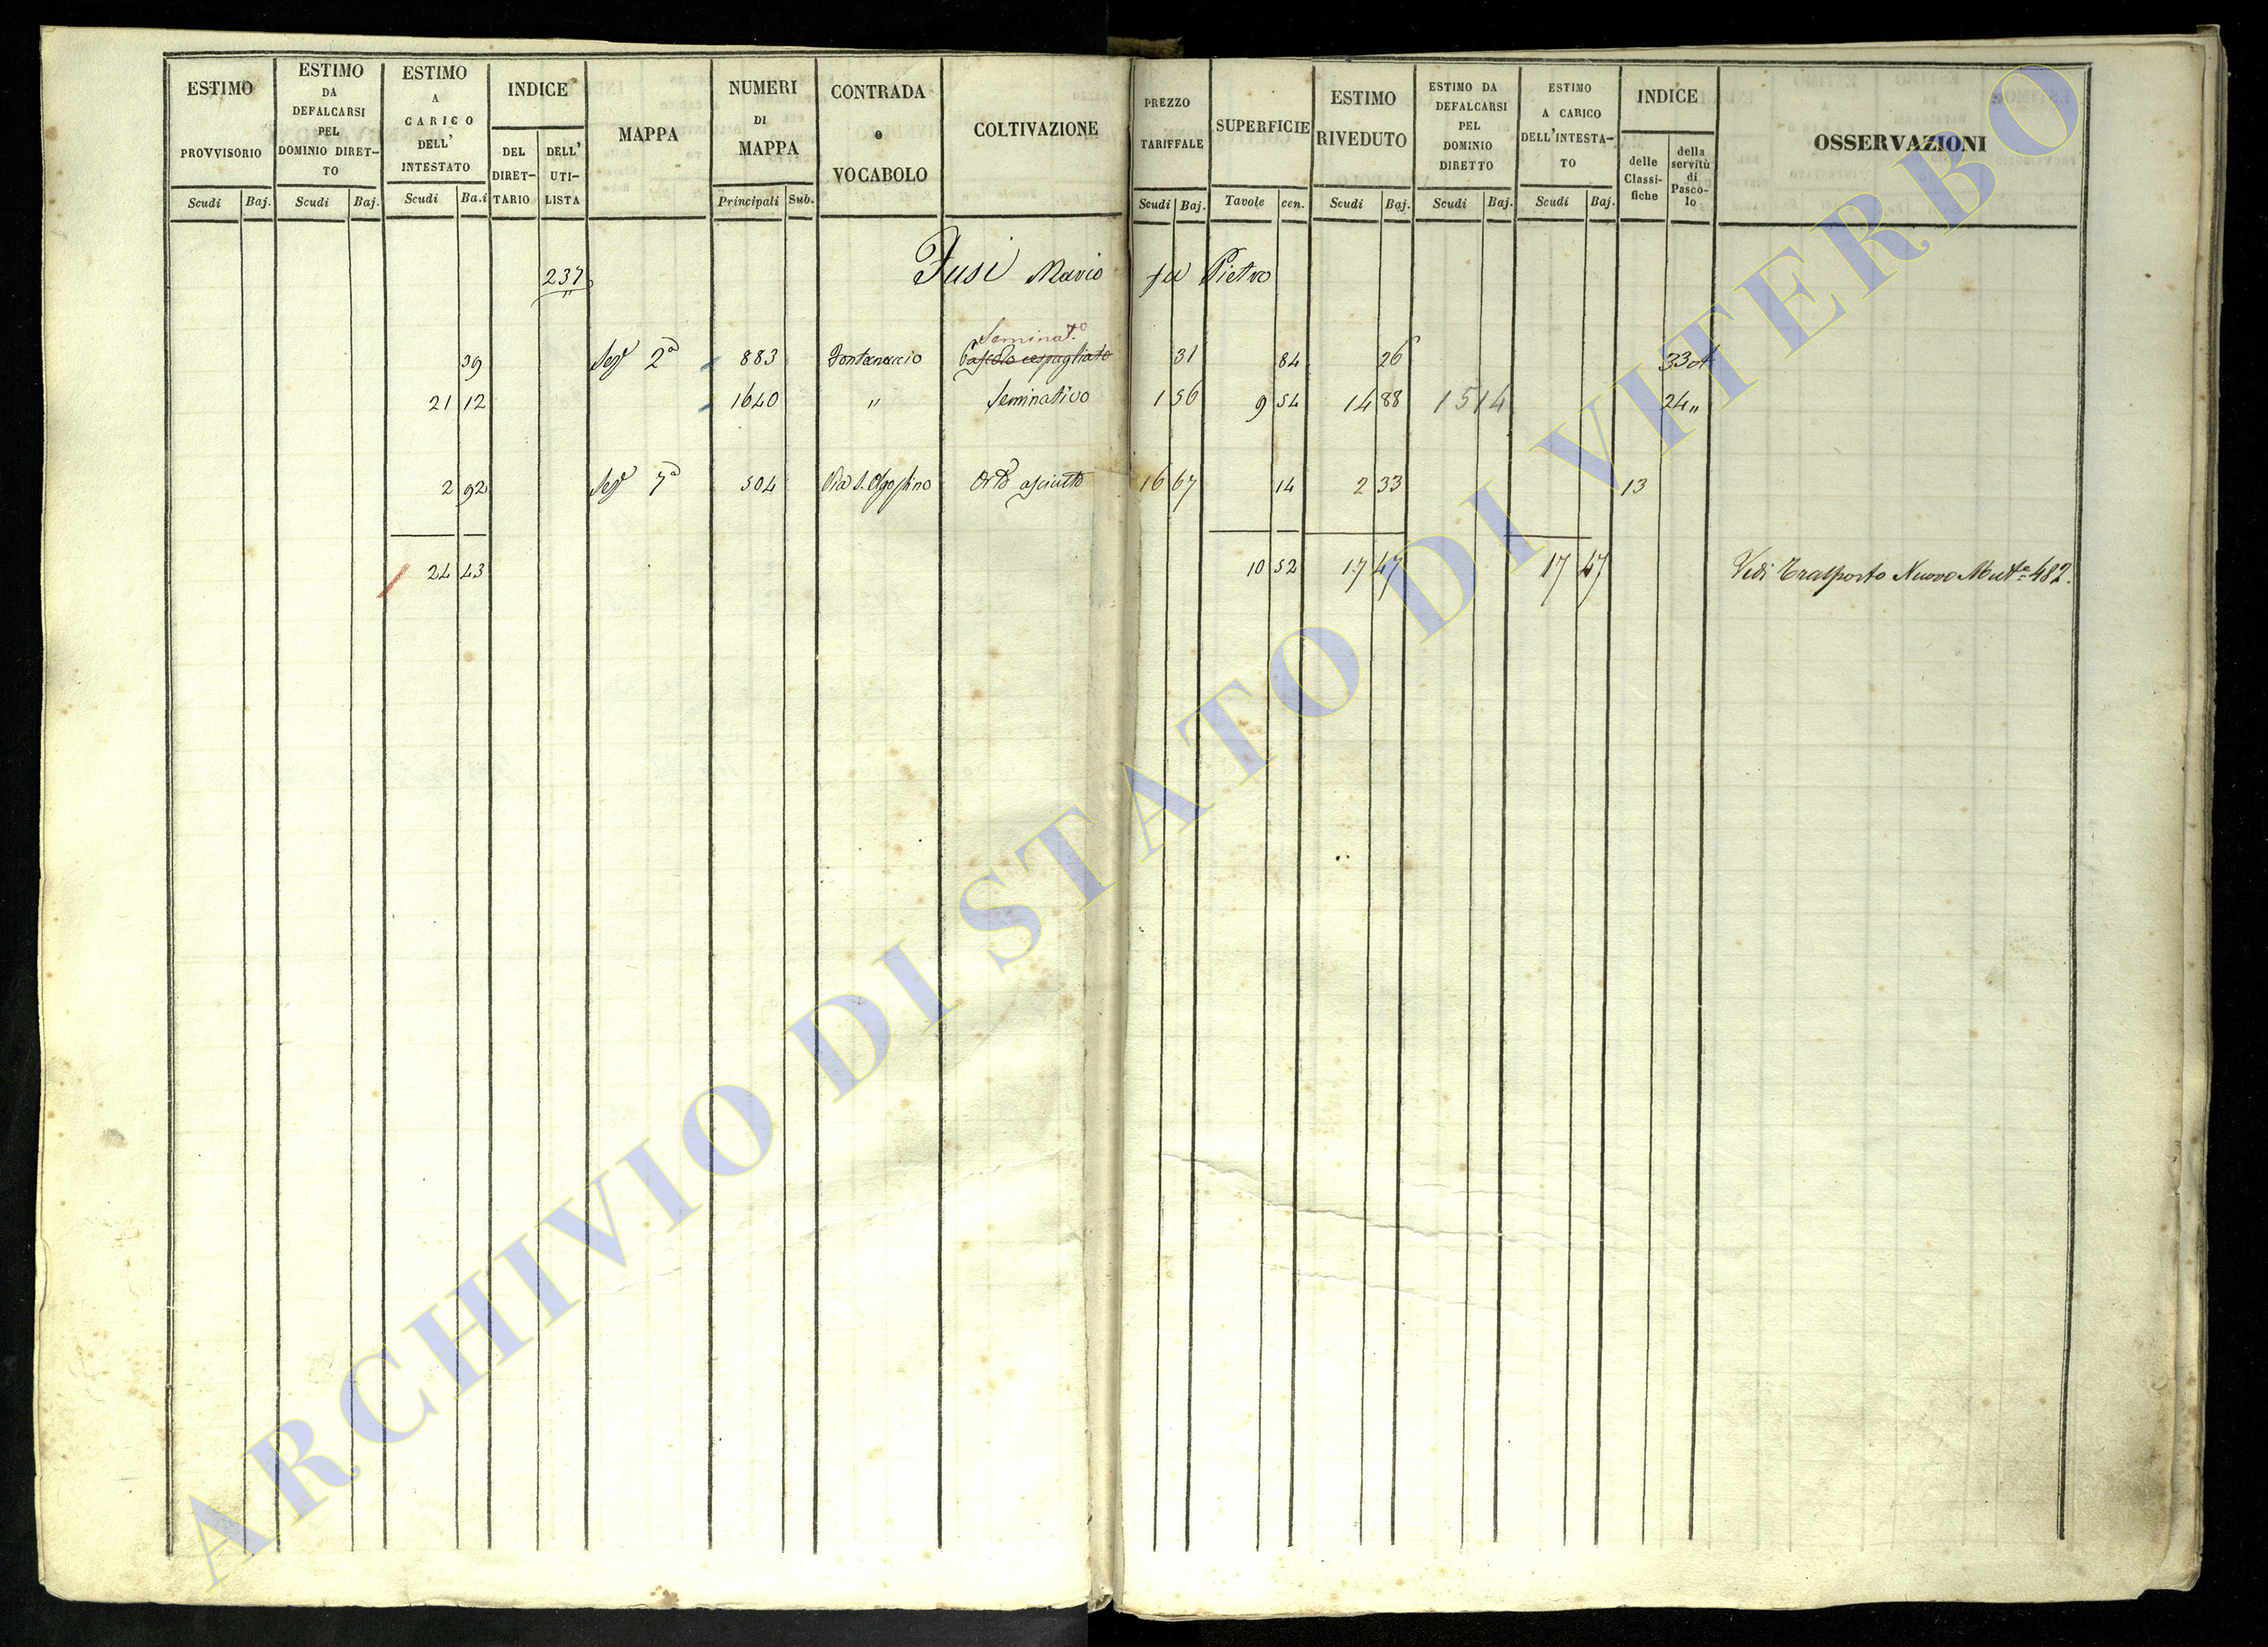 ESTIMO PROVVISORIO
ESTIMO DA DEFALCARSI PEL DOMINIO DIRET- TO
ESTIMO A CARICO DELL' INTESTATO
INDICE
DEL DIRET- TARIO
DELL' UTI- LISTA
MAPPA
NUMERI DI MAPPA
CONTRADA e VOCABOLO
COLTIVAZIONE
PREZZO TARIFFALE
SUPERFICIE
ESTIMO RIVEDUTO
ESTIMO DA DEFALCARSI PEL DOMINIO DIRETTO
ESTIMO A CARICO DELL'INTESTA- TO
INDICE
delle Classi- fiche
della servitù di Pasco- lo
OSSERVAZIONI
Scudi Baj. Scudi Baj. Scudi Ba.i Principali Sub. Scudi Baj. Tavole cen. Scudi Baj. Scudi Baj. Scudi Baj.
237 Fusi Mario fu Pietro
Seminat.o
39 Sez.e 2a 883 Fontanaccio Pascolo cespugliato 31 84 26 33
21 12 1640 " Seminativo 1 56 9 54 14 88 15 14 24 "
2 92 Sez.e 7a 504 Via S. Agostino Orto asciutto 16 67 14 2 33 13
24 43 10 52 17 47 17 47 Vedi Trasporto Nuovo Mut.e 482.
ARCHIVIO DI STATO DI VITERBO